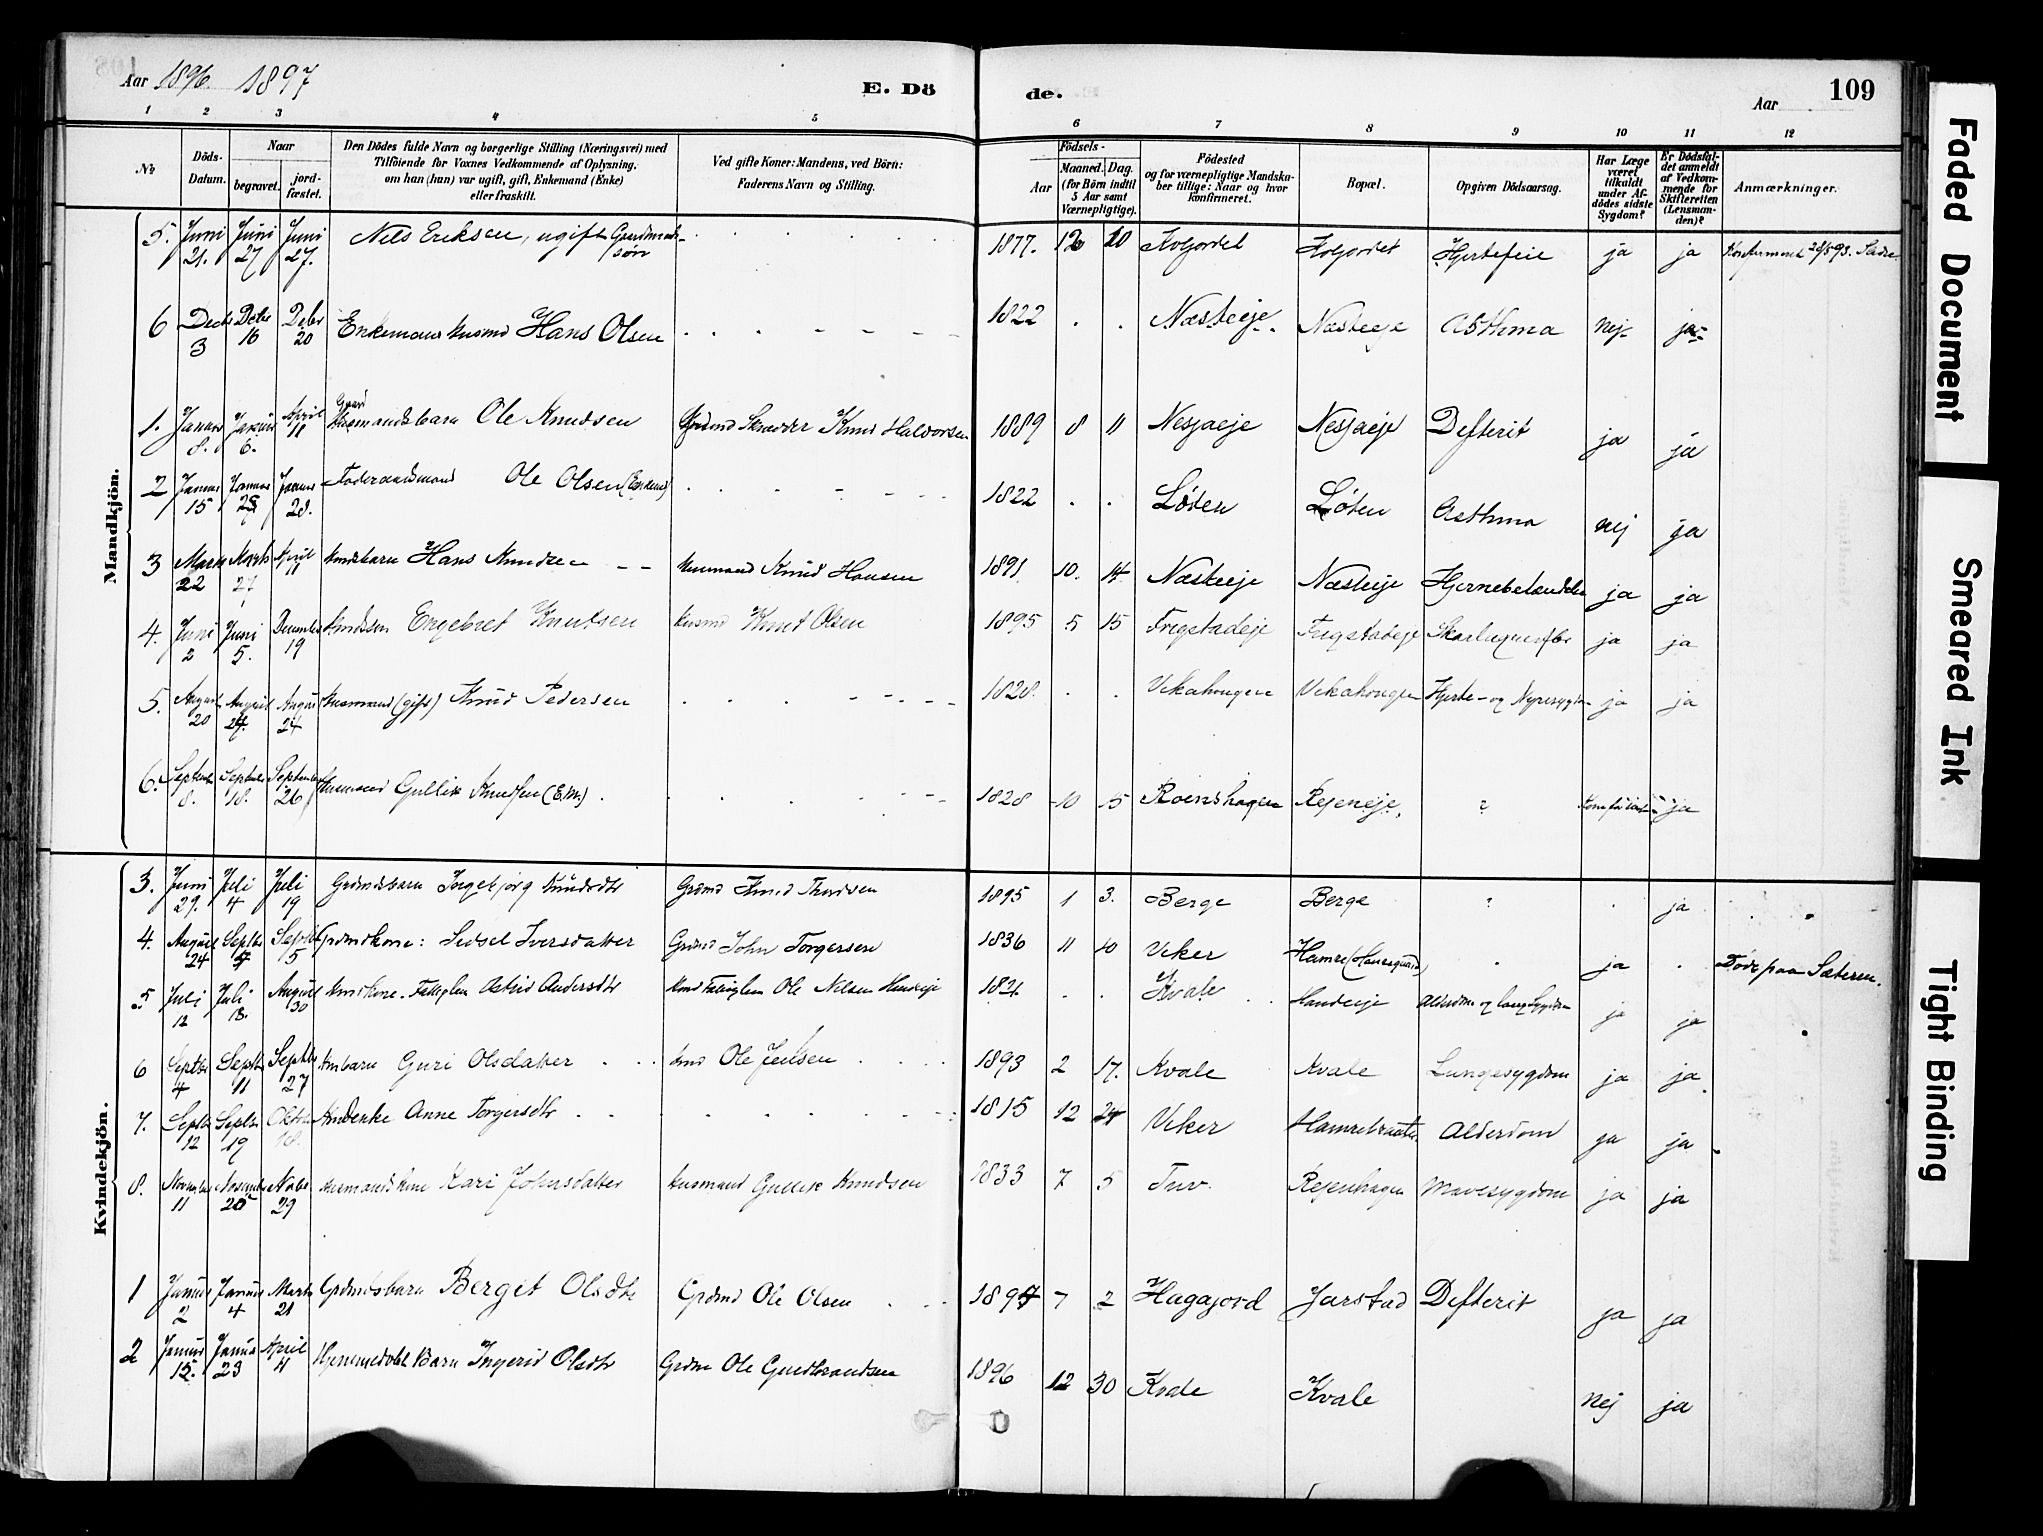 Aar 1896. 1897 E. Döde. Aar 109
1 2 3 4 5 6 7 8 9 10 11 12
№ Döds-Datum. Naar begravet. jordfæstet. Den Dödes fulde Navn og borgerlige Stilling (Næringsvei) med Tilföiende for Voxnes Vedkommende af Oplysning, om han (hun) var ugift, gift, Enkemand (Enke) eller fraskilt. Ved gifte Koner: Mandens, ved Börn: Faderens Navn og Stilling. Aar Födsels- Maaned. Dag. (for Börn indtil 5 Aar samt Værnepligtige). Födested og for værnepligtige Mandskaber tillige: Naar og hvor konfirmeret. Bopæl. Opgiven Dödsaarsag. Har Læge været tilkaldt under Afdödes sidste Sygdom? Er Dödsfaldet anmeldt af Vedkommende for Skifteretten (Lensmanden)? Anmærkninger.
Mandkjön.
5. Juni 21. Juni 27 Juni 27. Nels Eriksen, ugift Gaardmandssön 1877. 12 20 Hjertefeil ja ja
6 Decb 3 Decbr 16 Decbr 20 Enkemand Husmd Hans Olsen 1822 Næsteeje Næsteeje Asthma nej ja
1. Januar 8. 6. April 11 Gaardmandsbarn Ole Knudsen Grdmd Skrædder Knud Halvorsen 1889 8 11 Nesjaeje Nesjaeje Defterit ja ja
2 Januar 15 Januar Januar 28. Föderaadsmand Ole Olsen (Enkemd) 1822 Løten Løten Asthma nej ja
3 Marts 22 Marts 27 April 11 Husmdsbarn Hans Knudsen Husmand Knud Hansen 1891 10. 14. Næsteeje Næsteeje Hjernebetændelse ja ja
4. Juni 2 Juni 5. December 19 Engebret Knutsen Husmd Knut Olsen 1895 5 15 Frøgstadeje Frøgstadeje Skarlagensfeber ja ja
5. August 20 August 24. August 24 Husmand (gift) Knud Pedersen 1828. Vekahougen Vekahougen Hjerte- og Nyresygdom ja ja
6. Septemb 8. Septbr 18. September 26 Husmand Gullik Knudsen (E.M.) 1828 10 15 Roenshagen ? ja
Kvindekjön.
3. Juni 29. Juli 4 Juli 19 Grdmdsbarn Ingebjørg Knudsdtr Grdmd Knud Knudsen 1895 1 3. Berge Berge ? ja
4. August 24 Septbr Septbr 5 Grdmdkone: Sidsel Iversdatter Grdmd John Torgersen 1836 11 10 Veker Hamre ja Døde paa Sæteren.
5 Juli 12 Juli 18. August 30 Astrid Andersdtr Ole Nilsen 1821. Kvale Alderdom og lang Sygdom ja ja
6 Septbr 4 Septbr 11 Septbr 27 Husbarn Guri Olsdatter Husmd Ole Jensen 1893 2 17. Kvale Kvale Lungesygdom ja ja
7. Septbr 12 Septbr 19 Oktbr 18. Anne Torgersdtr 1815 12 24 Veker Alderdom ja ja
8. November 11 November 20 Novbr 29 Husmandskone Kari Johnsdatter Husmand Gullik Knudsen 1833 7 5 Tuv Mavesygdom ja ja
1 Januar 2 Januar 4 Marts 21 Grdmdsbarn Berget Olsdtr Grdmd Ole Olsen 1894 7 2 Hagajord Jarstad Defterit ja ja
2 Januar 15. Januar 23 April 11 Hjemmedøbt Barn Ingerid Olsdtr Grdm Ole Gundbrandsen 1896 12 30 Kvale Kvale nej ja
Faded Document
Smeared Ink
Tight Binding